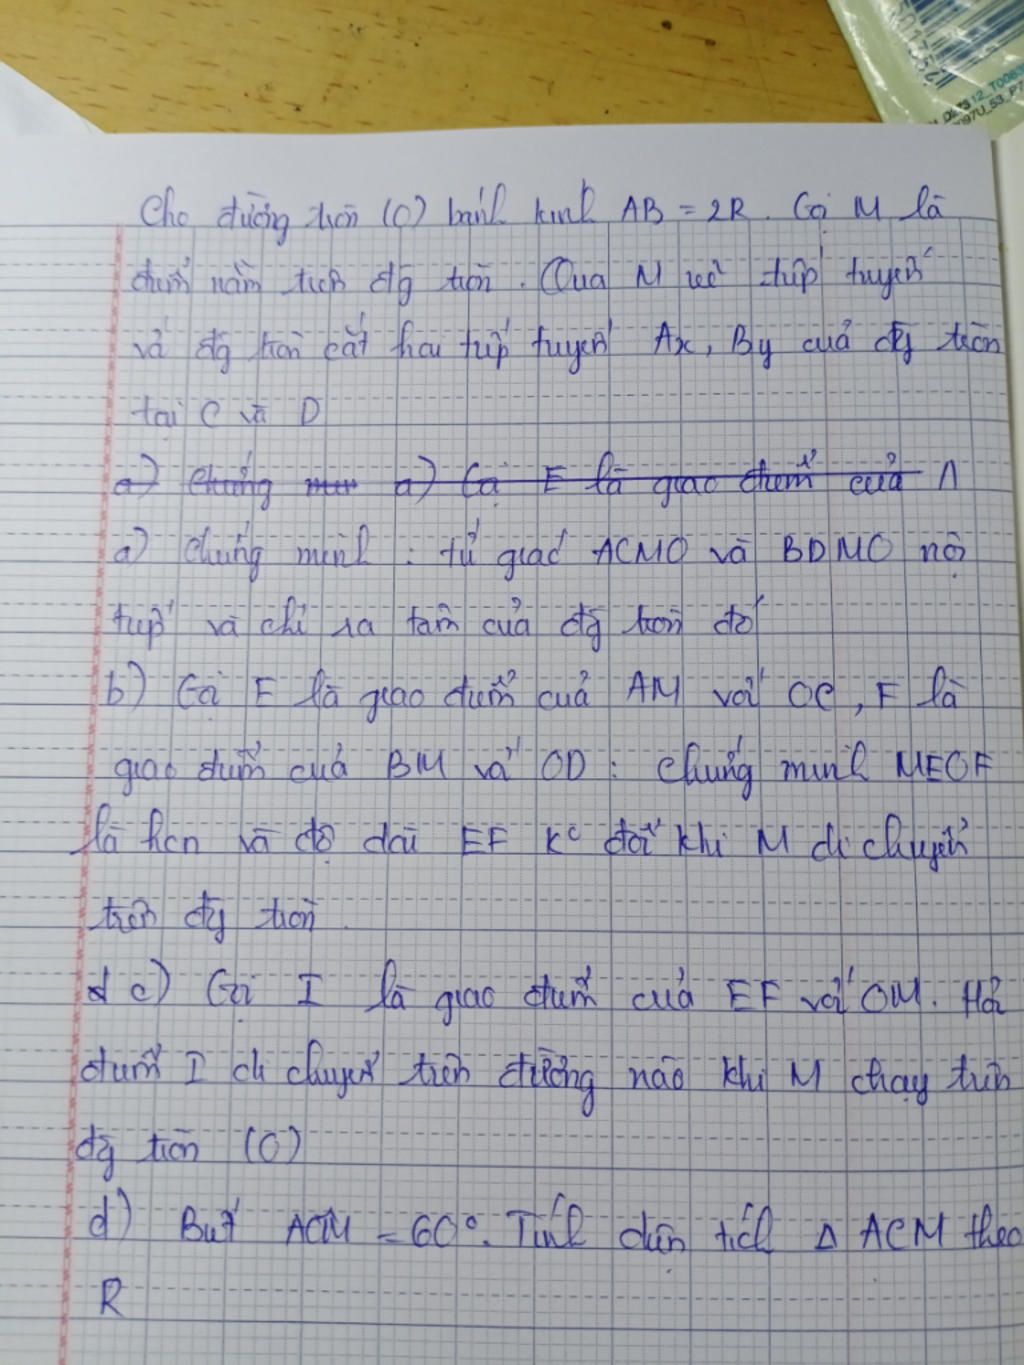 12_T0063
097U_53_P7
Cho đường tròn (O) bánh kính AB = 2R. Gọi M là
điểm nằm trên đg tròn. Qua M kẻ tiếp tuyến
và đg tròn cắt hai tiếp tuyến Ax, By của đg tròn
tại C và D
a) Chứng a) Gọi E là giao điểm của A
a) Chứng minh : tứ giác ACMO và BDMO nội
tiếp và chỉ ra tâm của đg tròn đó
b) Gọi E là giao điểm của AM với OC, F là
giao điểm của BM và OD : Chứng minh MEOF
là hcn và độ dài EF Kº đổi khi M di chuyển
trên đg tròn.
d c) Gọi I là giao điểm của EF với OM. Hỏi
điểm I di chuyển trên đường nào khi M chạy trên
đg tròn (O)
d) Biết ACM = 60º. Tính diện tích Δ ACM theo
R